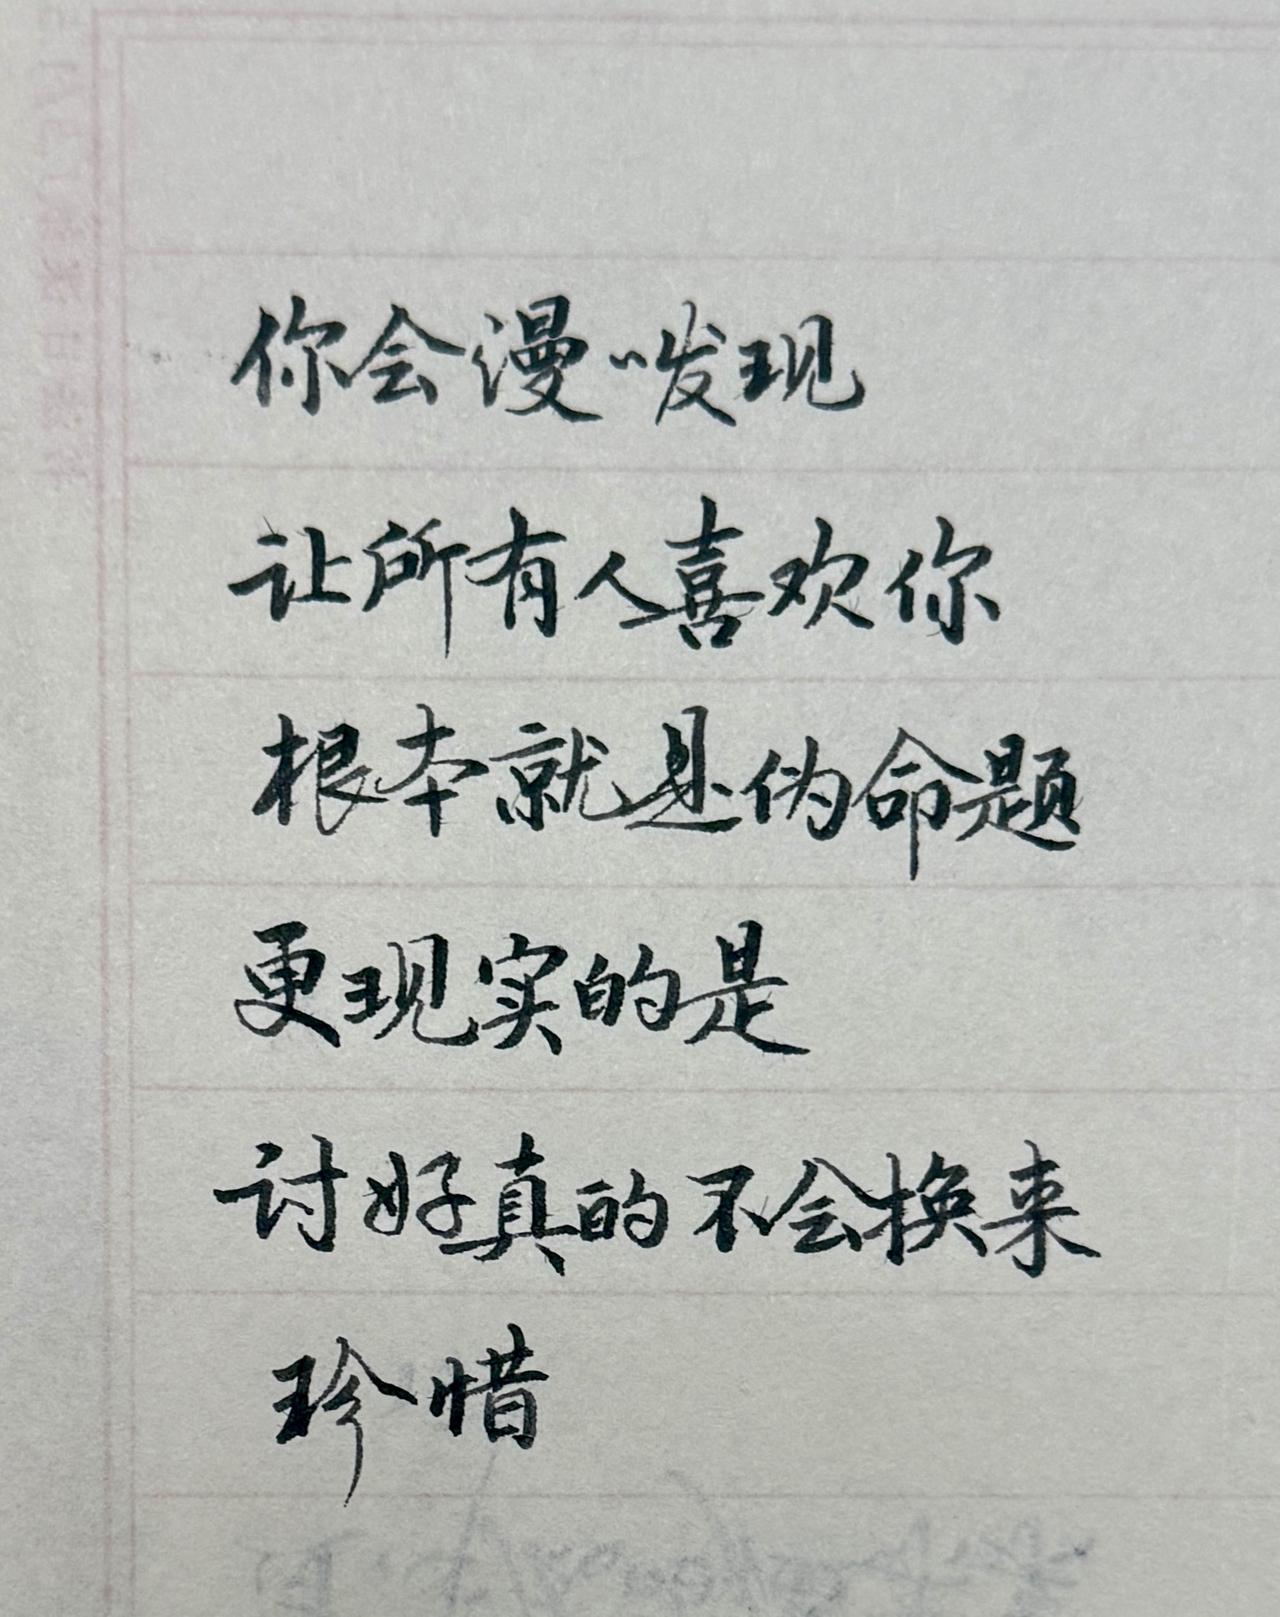 你会漫〃发现
让所有人喜欢你
根本就是伪命题
更现实的是
讨好真的不会换来
珍惜